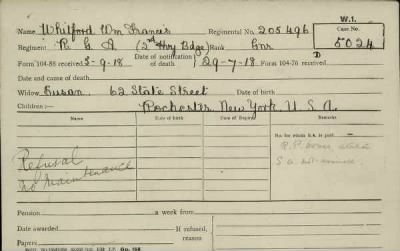 W.1.
Name Whitford Wm Francis Regimental No. 205496 Case No.
Regiment R. G. A (2nd Hvy Bdge) Rank Gnr 5024
Form 104-88 received 5-9-18 Date of notification of death 29-7-18 Form 104-76 received D
Date and cause of death
Widow Susan. 62 State Street Date of birth
Children:- Rochester, New York, U. S. A.
Name Date of Birth Name Date of Birth
No. for which S.A. is paid—
R.P.
S a not
Refusal
No Maintenance
Pension a week from
Date awarded If refused, reason
Award